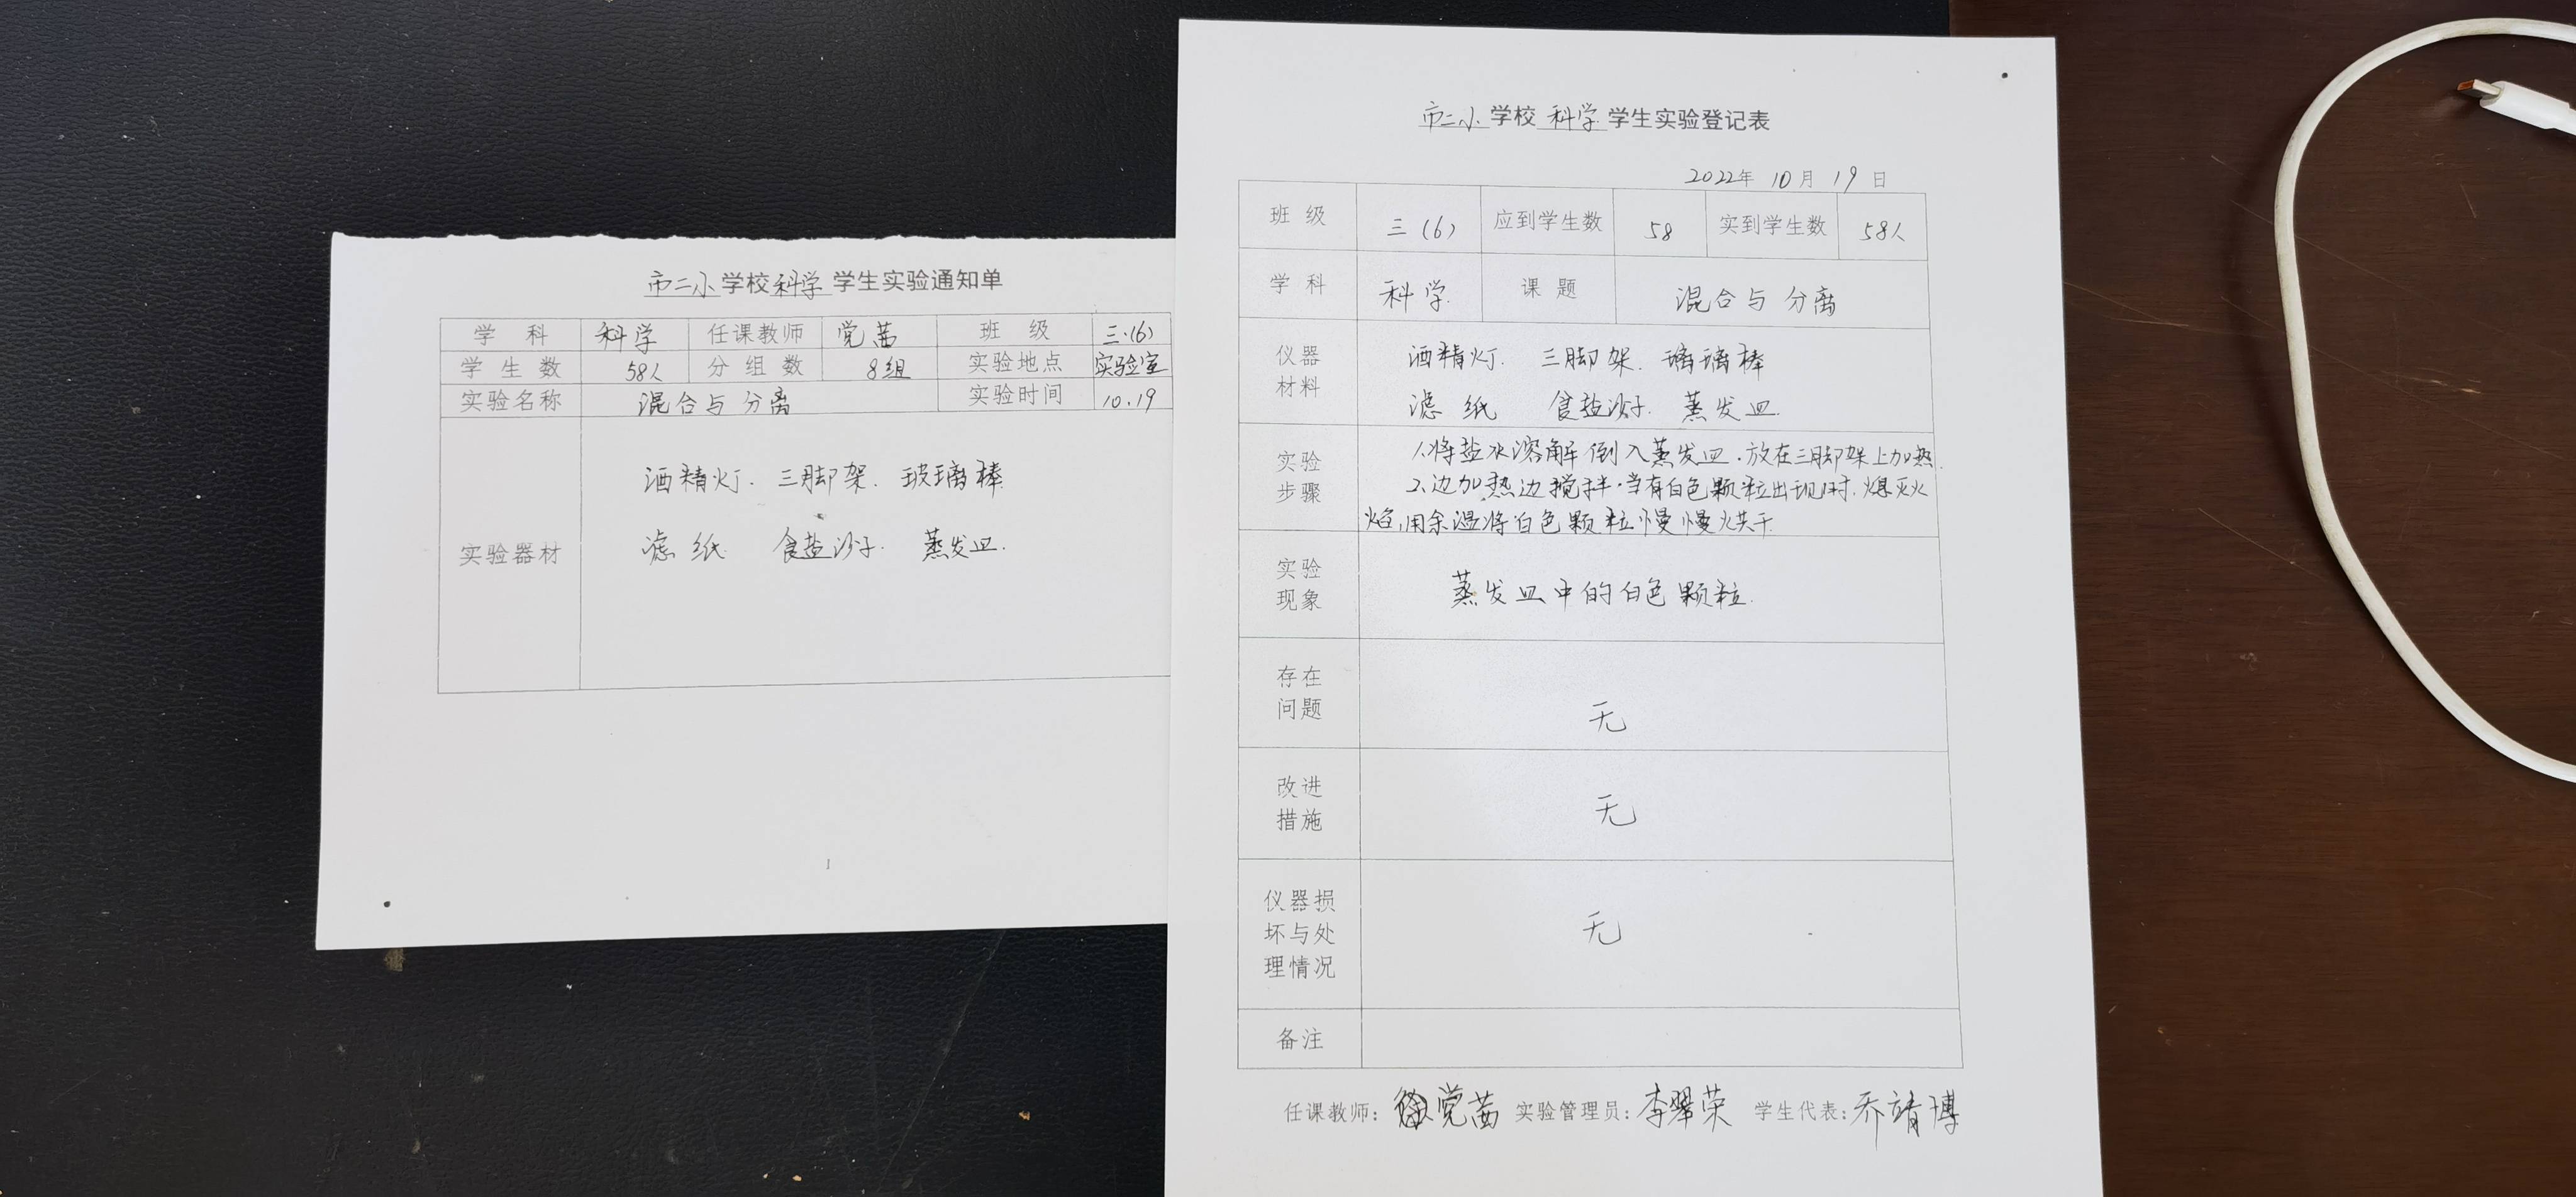 市二小学校科学学生实验通知单
学科 科学 任课教师 党茜 班级 三(6)
学生数 58人 分组数 8组 实验地点 实验室
实验名称 混合与分离 实验时间 10.19
实验器材
酒精灯. 三脚架. 玻璃棒
滤纸 食盐沙子. 蒸发皿.
1
市二小学校科学学生实验登记表
2022年10月19日
班级 三(6) 应到学生数 58 实到学生数 58人
学科 科学 课题 混合与分离
仪器材料
酒精灯. 三脚架. 璃璃棒
滤纸 食盐沙子. 蒸发皿.
实验步骤
1.将盐水溶解倒入蒸发皿.放在三脚架上加热.
2.边加热边搅拌.当有白色颗粒出现时.熄灭火
焰,用余温将白色颗粒慢慢烘干.
实验现象
蒸发皿中的白色颗粒.
存在问题
无
改进措施
无
仪器损坏与处理情况
无
备注
任课教师: 党茜 实验管理员: 李翠荣 学生代表: 乔靖博